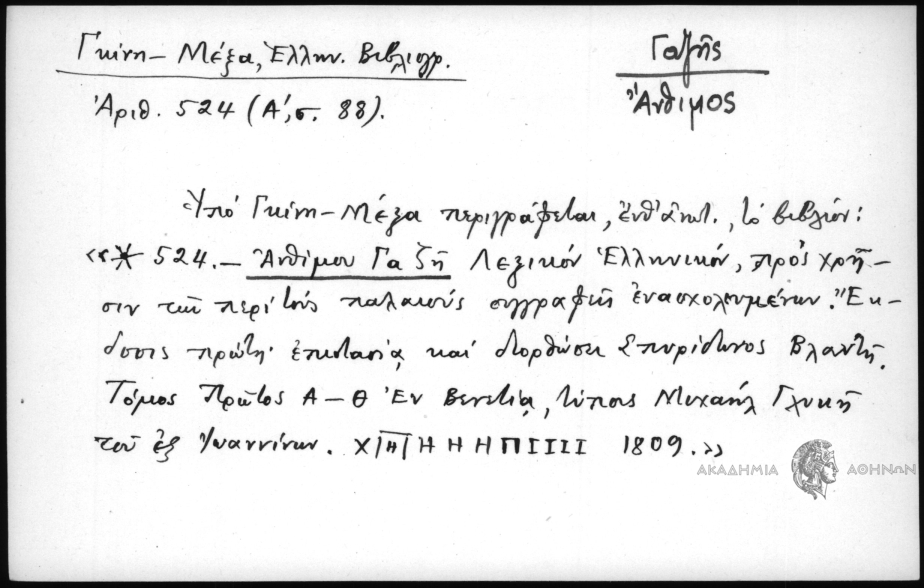 Γκίνη – Μέξα, Ἑλλην. Βιβλιογρ.
Ἀριθ. 524 (Α΄, σ. 88).
Γαζῆς
Ἄνθιμος
Ὑπό Γκίνη – Μέξα περιγράφεται, ἐνθ' ἀνωτ., τό βιβλίον:
«* 524. – Ἀνθίμου Γαζῆ Λεξικόν Ἑλληνικόν, πρός χρῆ-
σιν τῶν περί τούς παλαιούς συγγραφεῖς ἐνασχολουμένων. Ἔκ-
δοσις πρώτη· ἐπιστασίᾳ καί διορθώσει Σπυρίδωνος Βλαντῆ.
Τόμος Πρῶτος Α – Θ Ἐν Βενετίᾳ, τύποις Μιχαήλ Γλυκῆ
τοῦ ἐξ Ἰωαννίνων. ΧΠΗΗΗΗΠΙΙΙΙ 1809.»
ΑΚΑΔΗΜΙΑ ΑΘΗΝΩΝ